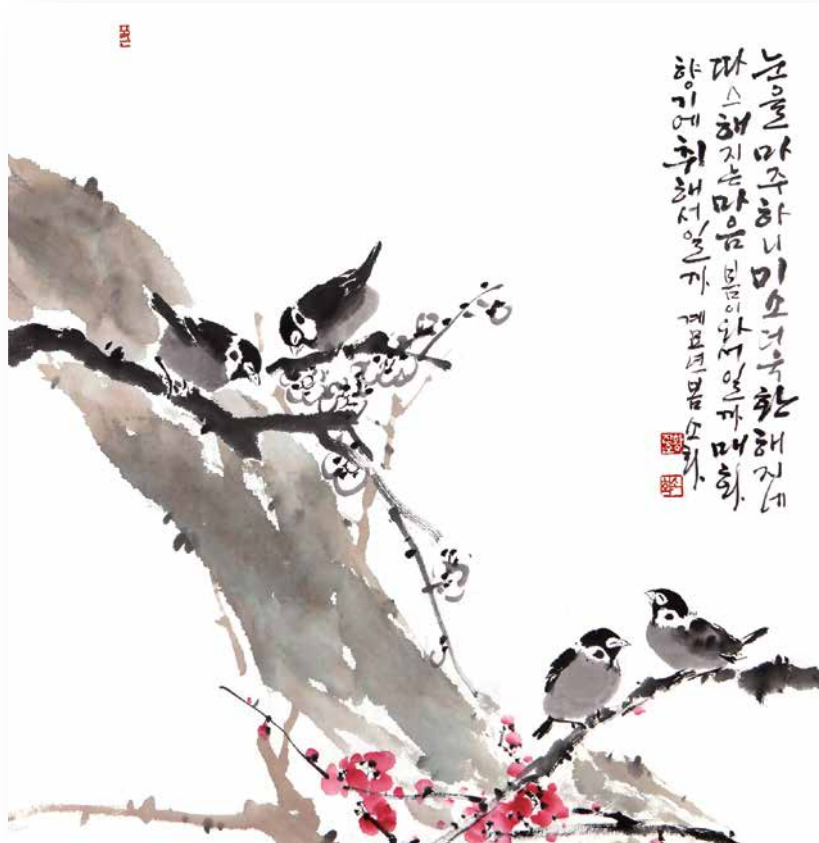 눈을 마주하니 미소 더욱 환해지네
따스해지는 마음 봄이 와서일까 매화
향기에 취해서일까 계묘년 봄 소화